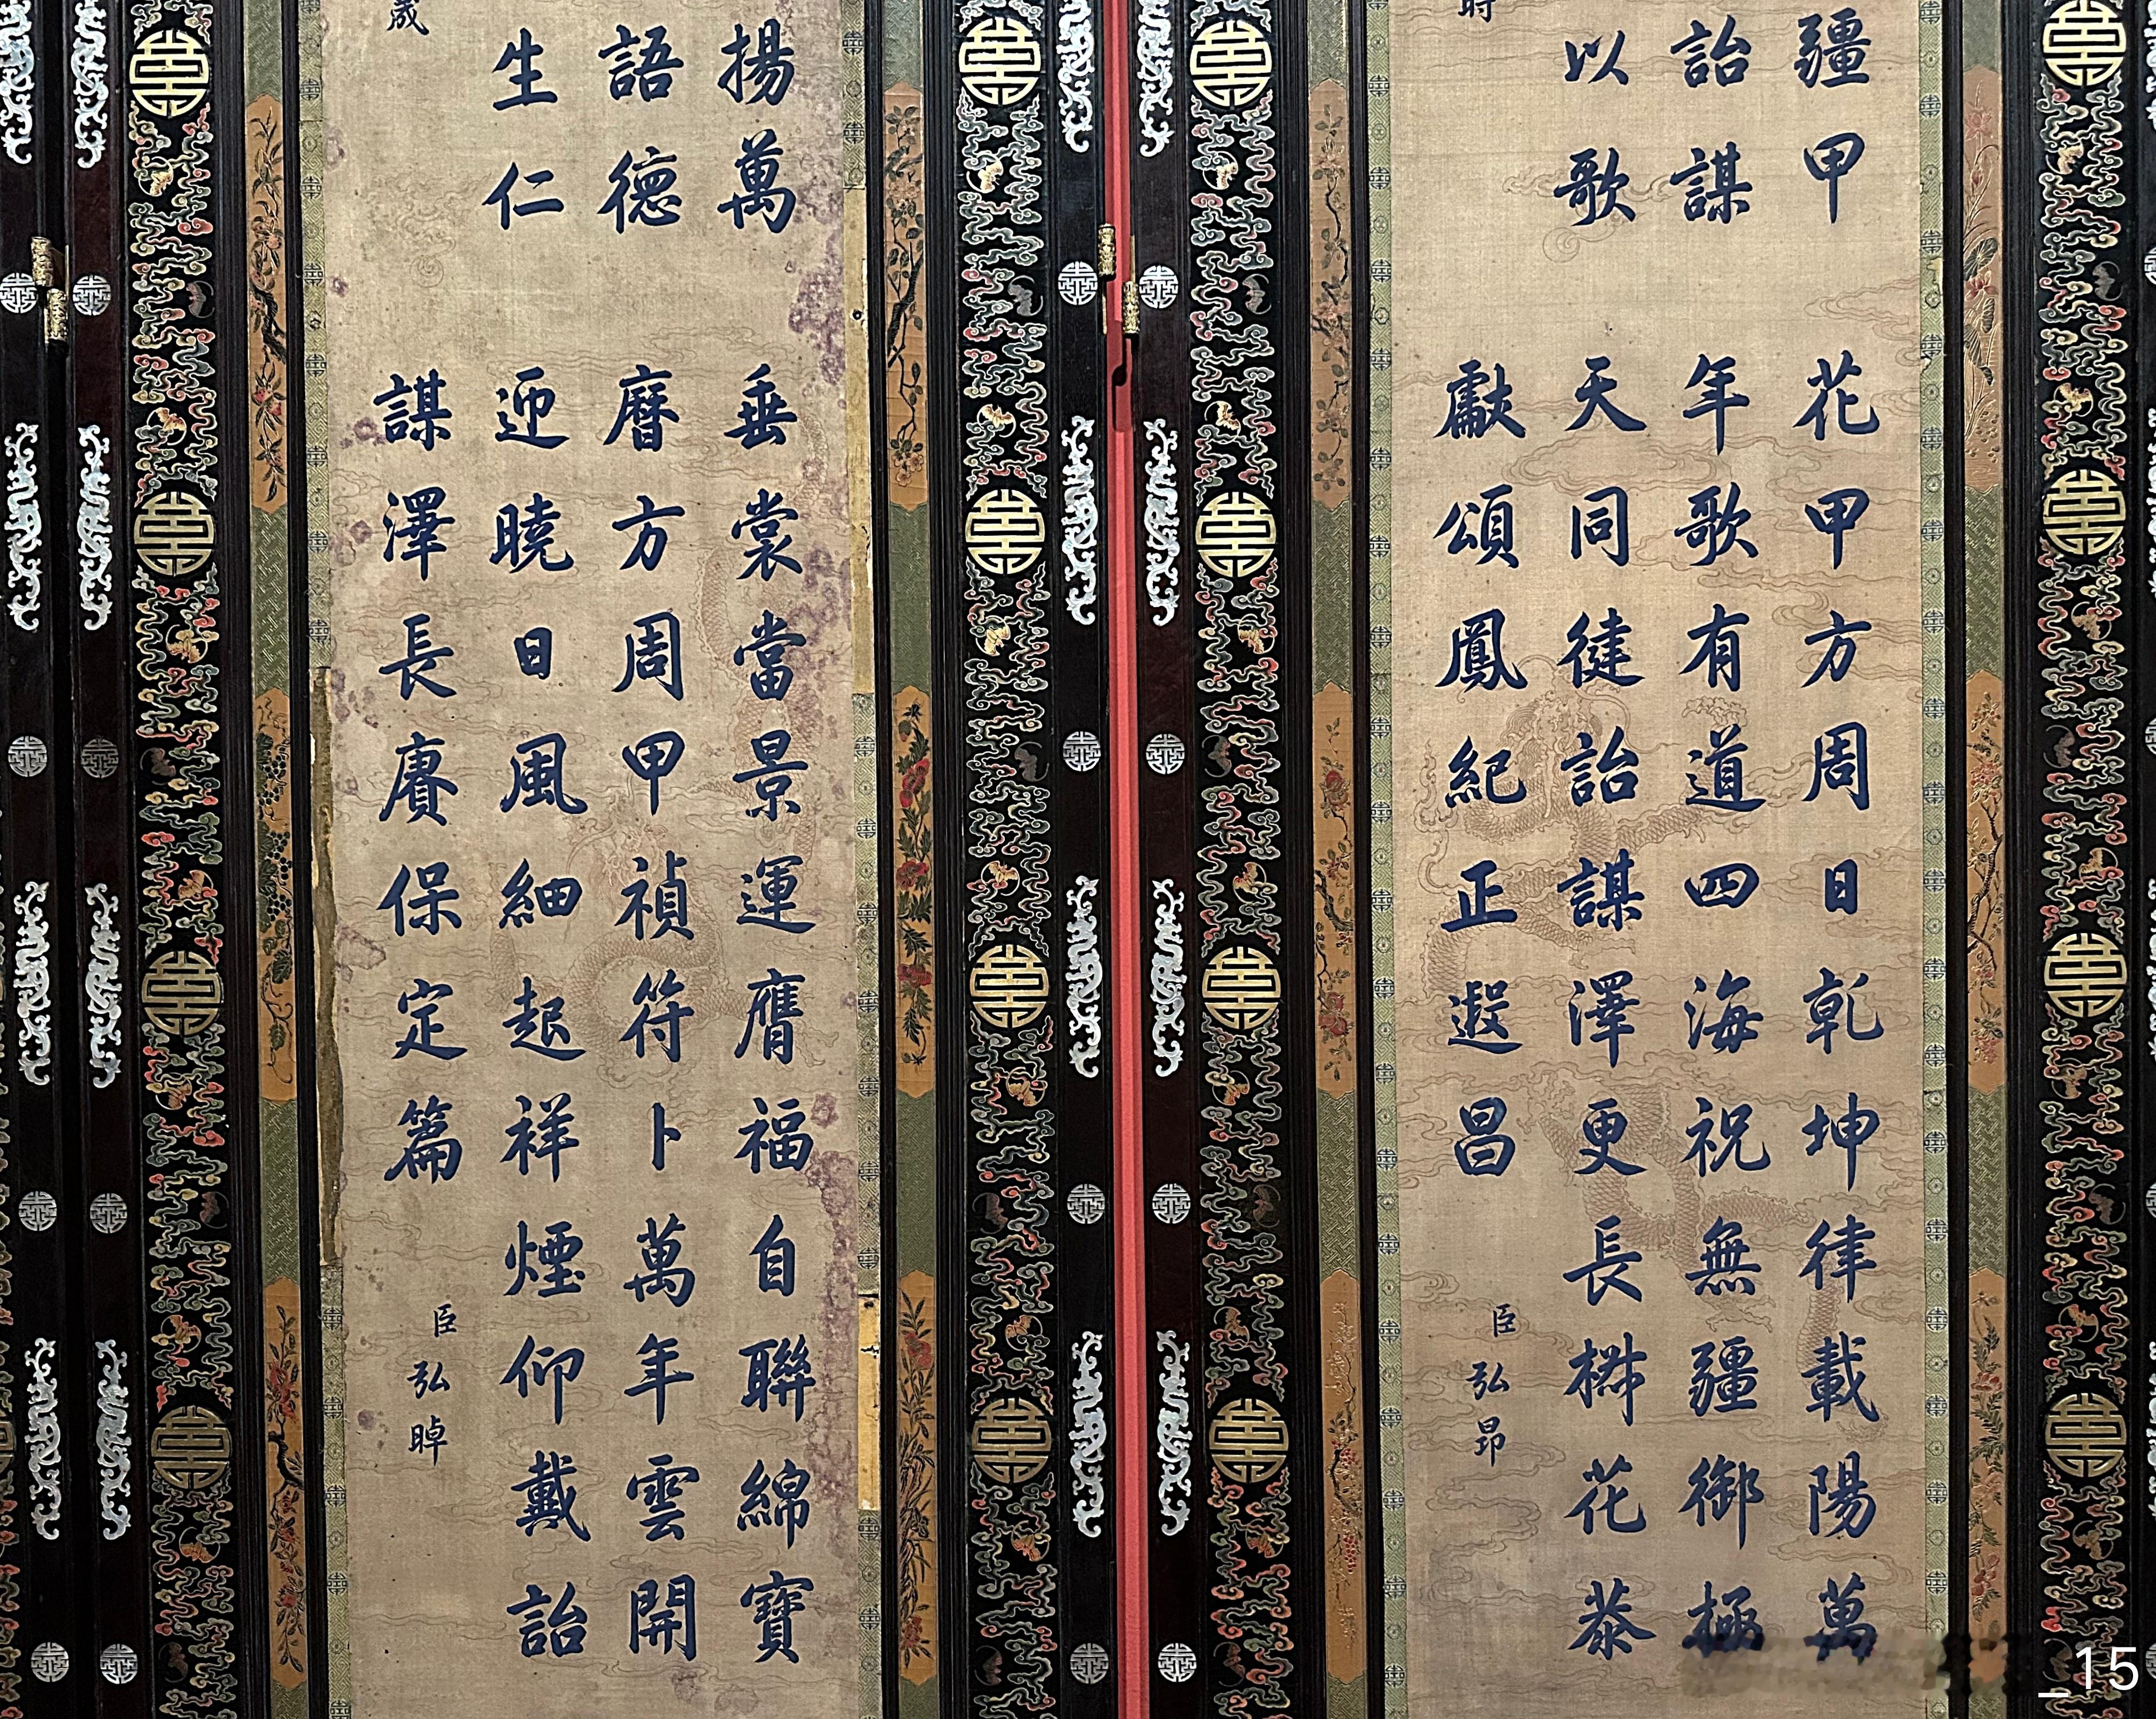 疆甲
詒謀
以歌
時
花甲方周日乾坤律載陽萬
年歌有道四海祝無疆御極
天同徤詒謀澤更長椒花恭
獻頌鳳紀正遐昌
臣弘昂
揚萬
語德
生仁
歲
垂裳當景運膺福自聯綿寶
暦方周甲禎符卜萬年雲開
迎曉日風細起祥煙仰戴詒
謀澤長賡保定篇
臣弘晫
_15